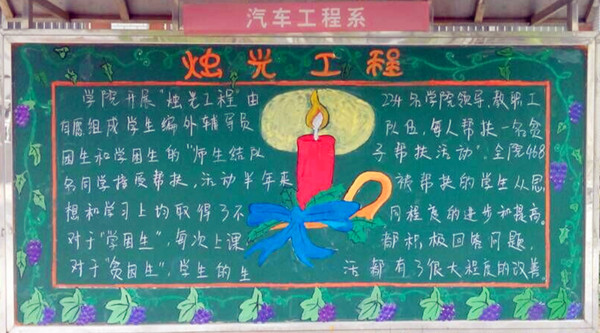 汽车工程系
烛光工程
学院开展“烛光工程”由224名学院领导、教职工
自愿组成学生编外辅导员队伍,每人帮扶一名贫
困生和学困生的“师生结队子帮扶活动”。全院468
名同学接受帮扶,活动半年来被帮扶的学生从思
想和学习上均取得了不同程度的进步和提高。
对于“学困生”,每次上课都积极回答问题.
对于“贫困生”,学生的生活都有了很大程度的改善